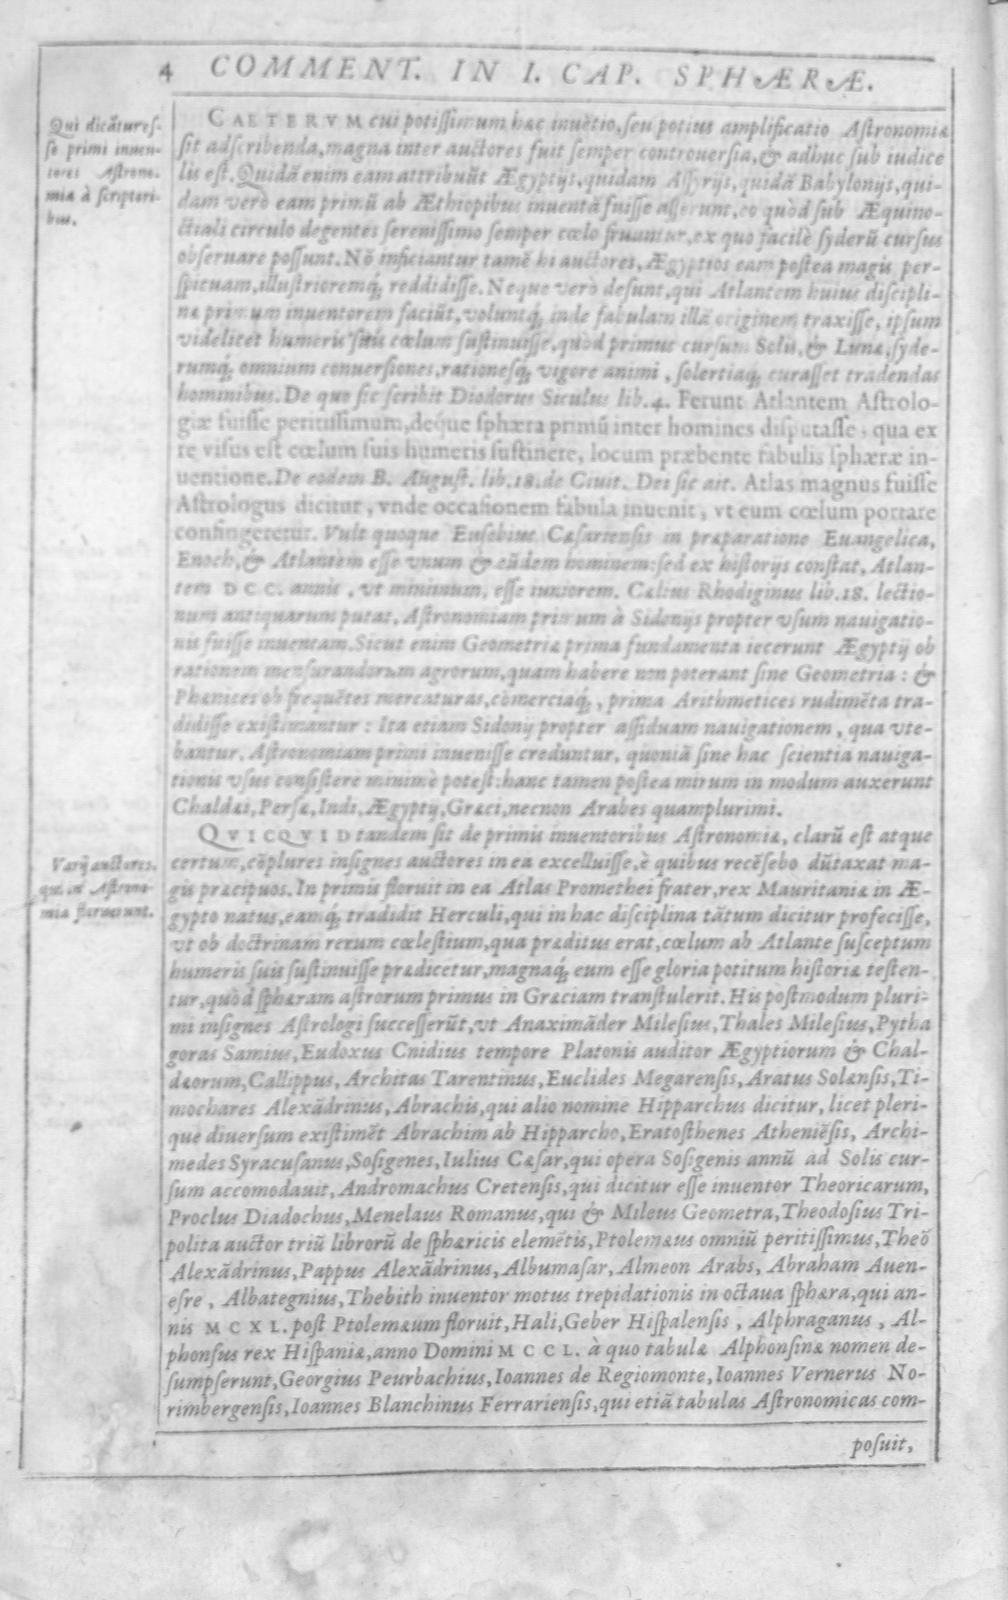 4 COMMENT. IN I. CAP. SPHÆRÆ.
Qui dicãtur es-
se primi inuen-
tores Astrono-
miæ à scriptori-
bus.
CAETERVM cui potissimum hæc inuẽtio, seu potius amplificatio Astronomiæ
sit adscribenda, magna inter auctores fuit semper controuersia, & adhuc sub iudice
lis est. Quidã enim eam attribuũt Ægyptijs, quidam Assyrijs, quidã Babylonijs, qui-
dam verò eam primũ ab Æthiopibus inuentã fuisse asserunt, eo quòd sub Æquino-
ctiali circulo degentes serenissimo semper cœlo fruantur, ex quo facilè syderũ cursus
obseruare possunt. Nõ inficiantur tamẽ hi auctores, Ægyptios eam postea magis per-
spicuam, illustrioremq́; reddidisse. Neque verò desunt, qui Atlantem huius discipli-
næ primum inuentorem faciũt, voluntq́; inde fabulam illã originem traxisse, ipsum
videlicet humeris suis cœlum sustinuisse, quòd primus cursum Solis, & Lunæ, syde-
rumq́; omnium conuersiones, rationesq́; vigore animi, solertiaq́; curasset tradendas
hominibus. De quo sic scribit Diodorus Siculus lib. 4. Ferunt Atlantem Astrolo-
giæ fuisse peritissimum, deque sphæra primũ inter homines disputasse, qua ex
re visus est cœlum suis humeris sustinere, locum præbente fabulis sphæræ in-
uentione. De eodem B. August. lib. 18. de Ciuit. Dei sic ait. Atlas magnus fuisse
Astrologus dicitur, vnde occasionem fabula inuenit, vt eum cœlum portare
confingeretur. Vult quoque Eusebius Cæsariensis in præparatione Euangelica,
Enoch, & Atlantem esse vnum & eũdem hominem: sed ex historijs constat, Atlan-
tem DCC. annis, vt minimum, esse iuniorem. Cælius Rhodiginus lib. 18. lectio-
num antiquarum putat, Astronomiam primum à Sidonijs propter vsum nauigatio-
nis fuisse inuentam. Sicut enim Geometriæ prima fundamenta iecerunt Ægyptij ob
rationem mensurandorum agrorum, quam habere non poterant sine Geometria: &
Phœnices ob frequẽtes mercaturas, cõmerciaq́;, prima Arithmetices rudimẽta tra-
didisse existimantur: Ita etiam Sidonij propter assiduam nauigationem, qua vte-
bantur, Astronomiam primi inuenisse creduntur, quoniã sine hac scientia nauiga-
tionis vsus consistere minimè potest: hanc tamen postea mirum in modum auxerunt
Chaldæi, Persæ, Indi, Ægyptij, Græci, necnon Arabes quamplurimi.
Varij auctores,
qui in Astrono-
mia floruerunt.
QVICQVID tandem sit de primis inuentoribus Astronomiæ, clarũ est atque
certum, cõplures insignes auctores in ea excelluisse, è quibus recẽsebo dũtaxat ma-
gis præcipuos. In primis floruit in ea Atlas Promethei frater, rex Mauritaniæ in Æ-
gypto natus, eamq́; tradidit Herculi, qui in hac disciplina tãtum dicitur profecisse,
vt ob doctrinam rerum cœlestium, qua præditus erat, cœlum ab Atlante susceptum
humeris suis sustinuisse prædicetur, magnaq́; eum esse gloria potitum historiæ testen-
tur, quòd sphæram astrorum primus in Græciam transtulerit. His postmodum pluri-
mi insignes Astrologi successerũt, vt Anaximãder Milesius, Thales Milesius, Pytha
goras Samius, Eudoxus Cnidius tempore Platonis auditor Ægyptiorum & Chal-
dæorum, Callippus, Architas Tarentinus, Euclides Megarensis, Aratus Solensis, Ti-
mochares Alexãdrinus, Abrachis, qui alio nomine Hipparchus dicitur, licet pleri-
que diuersum existimẽt Abrachim ab Hipparcho, Eratosthenes Atheniẽsis, Archi-
medes Syracusanus, Sosigenes, Iulius Cæsar, qui opera Sosigenis annũ ad Solis cur-
sum accomodauit, Andromachus Cretensis, qui dicitur esse inuentor Theoricarum,
Proclus Diadochus, Menelaus Romanus, qui & Mileus Geometra, Theodosius Tri-
polita auctor triũ librorũ de sphæricis elemẽtis, Ptolemæus omniũ peritissimus, Theõ
Alexãdrinus, Pappus Alexãdrinus, Albumasar, Almeon Arabs, Abraham Auen-
esre, Albategnius, Thebith inuentor motus trepidationis in octaua sphæra, qui an-
nis MCXL. post Ptolemæum floruit, Hali, Geber Hispalensis, Alphraganus, Al-
phonsus rex Hispaniæ, anno Domini MCCL. à quo tabulæ Alphonsinæ nomen de-
sumpserunt, Georgius Peurbachius, Ioannes de Regiomonte, Ioannes Vernerus No-
rimbergensis, Ioannes Blanchinus Ferrariensis, qui etiã tabulas Astronomicas com-
posuit,